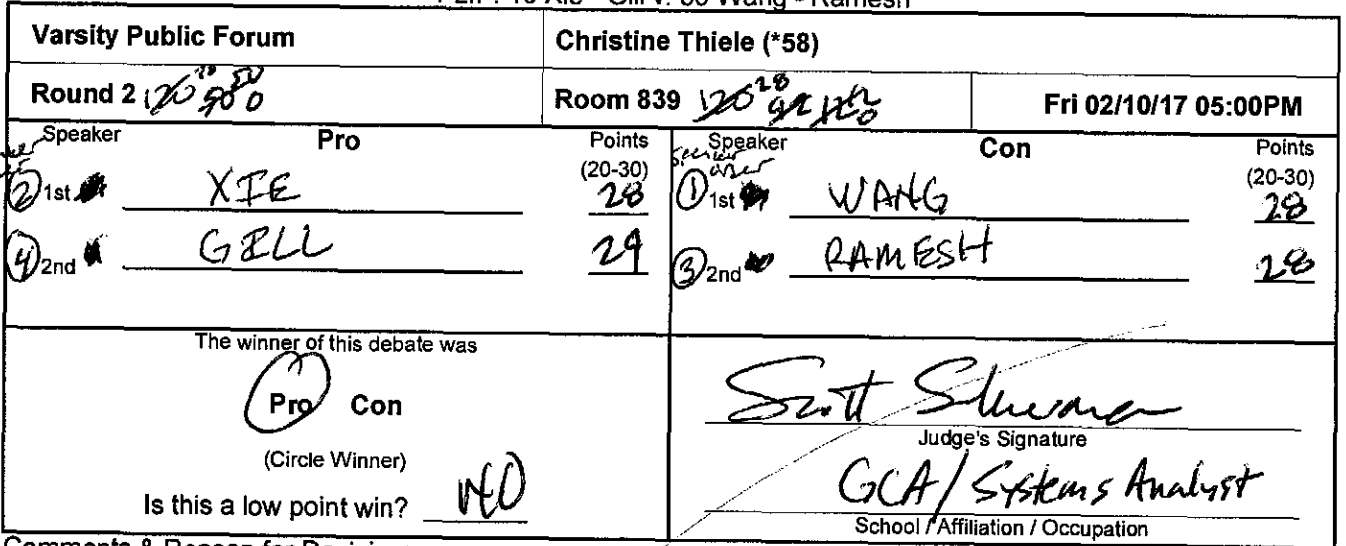 Varsity Public Forum
Christine Thiele (*58)
Round 2
Room 839
Fri 02/10/17 05:00PM
Speaker Pro Points
(20-30)
② 1st XIE 28
④ 2nd GILL 29
Speaker Con Points
(20-30)
① 1st WANG 28
③ 2nd RAMESH 28
The winner of this debate was
Pro Con
(Circle Winner)
Is this a low point win? NO
Scott
Judge's Signature
GCA / Systems Analyst
School / Affiliation / Occupation